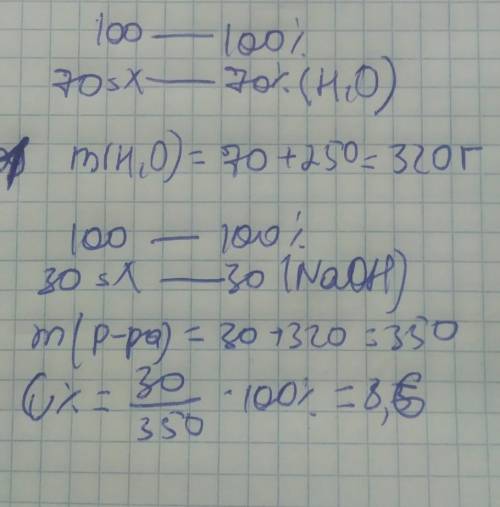 100 — 100%
70=X — 70% (H₂O)
m(H₂O) = 70 + 250 = 320г
100 — 100%
30=X — 30 (NaOH)
m(р-ра) = 30 + 320 = 350
W% = 30/350 · 100% = 8,6